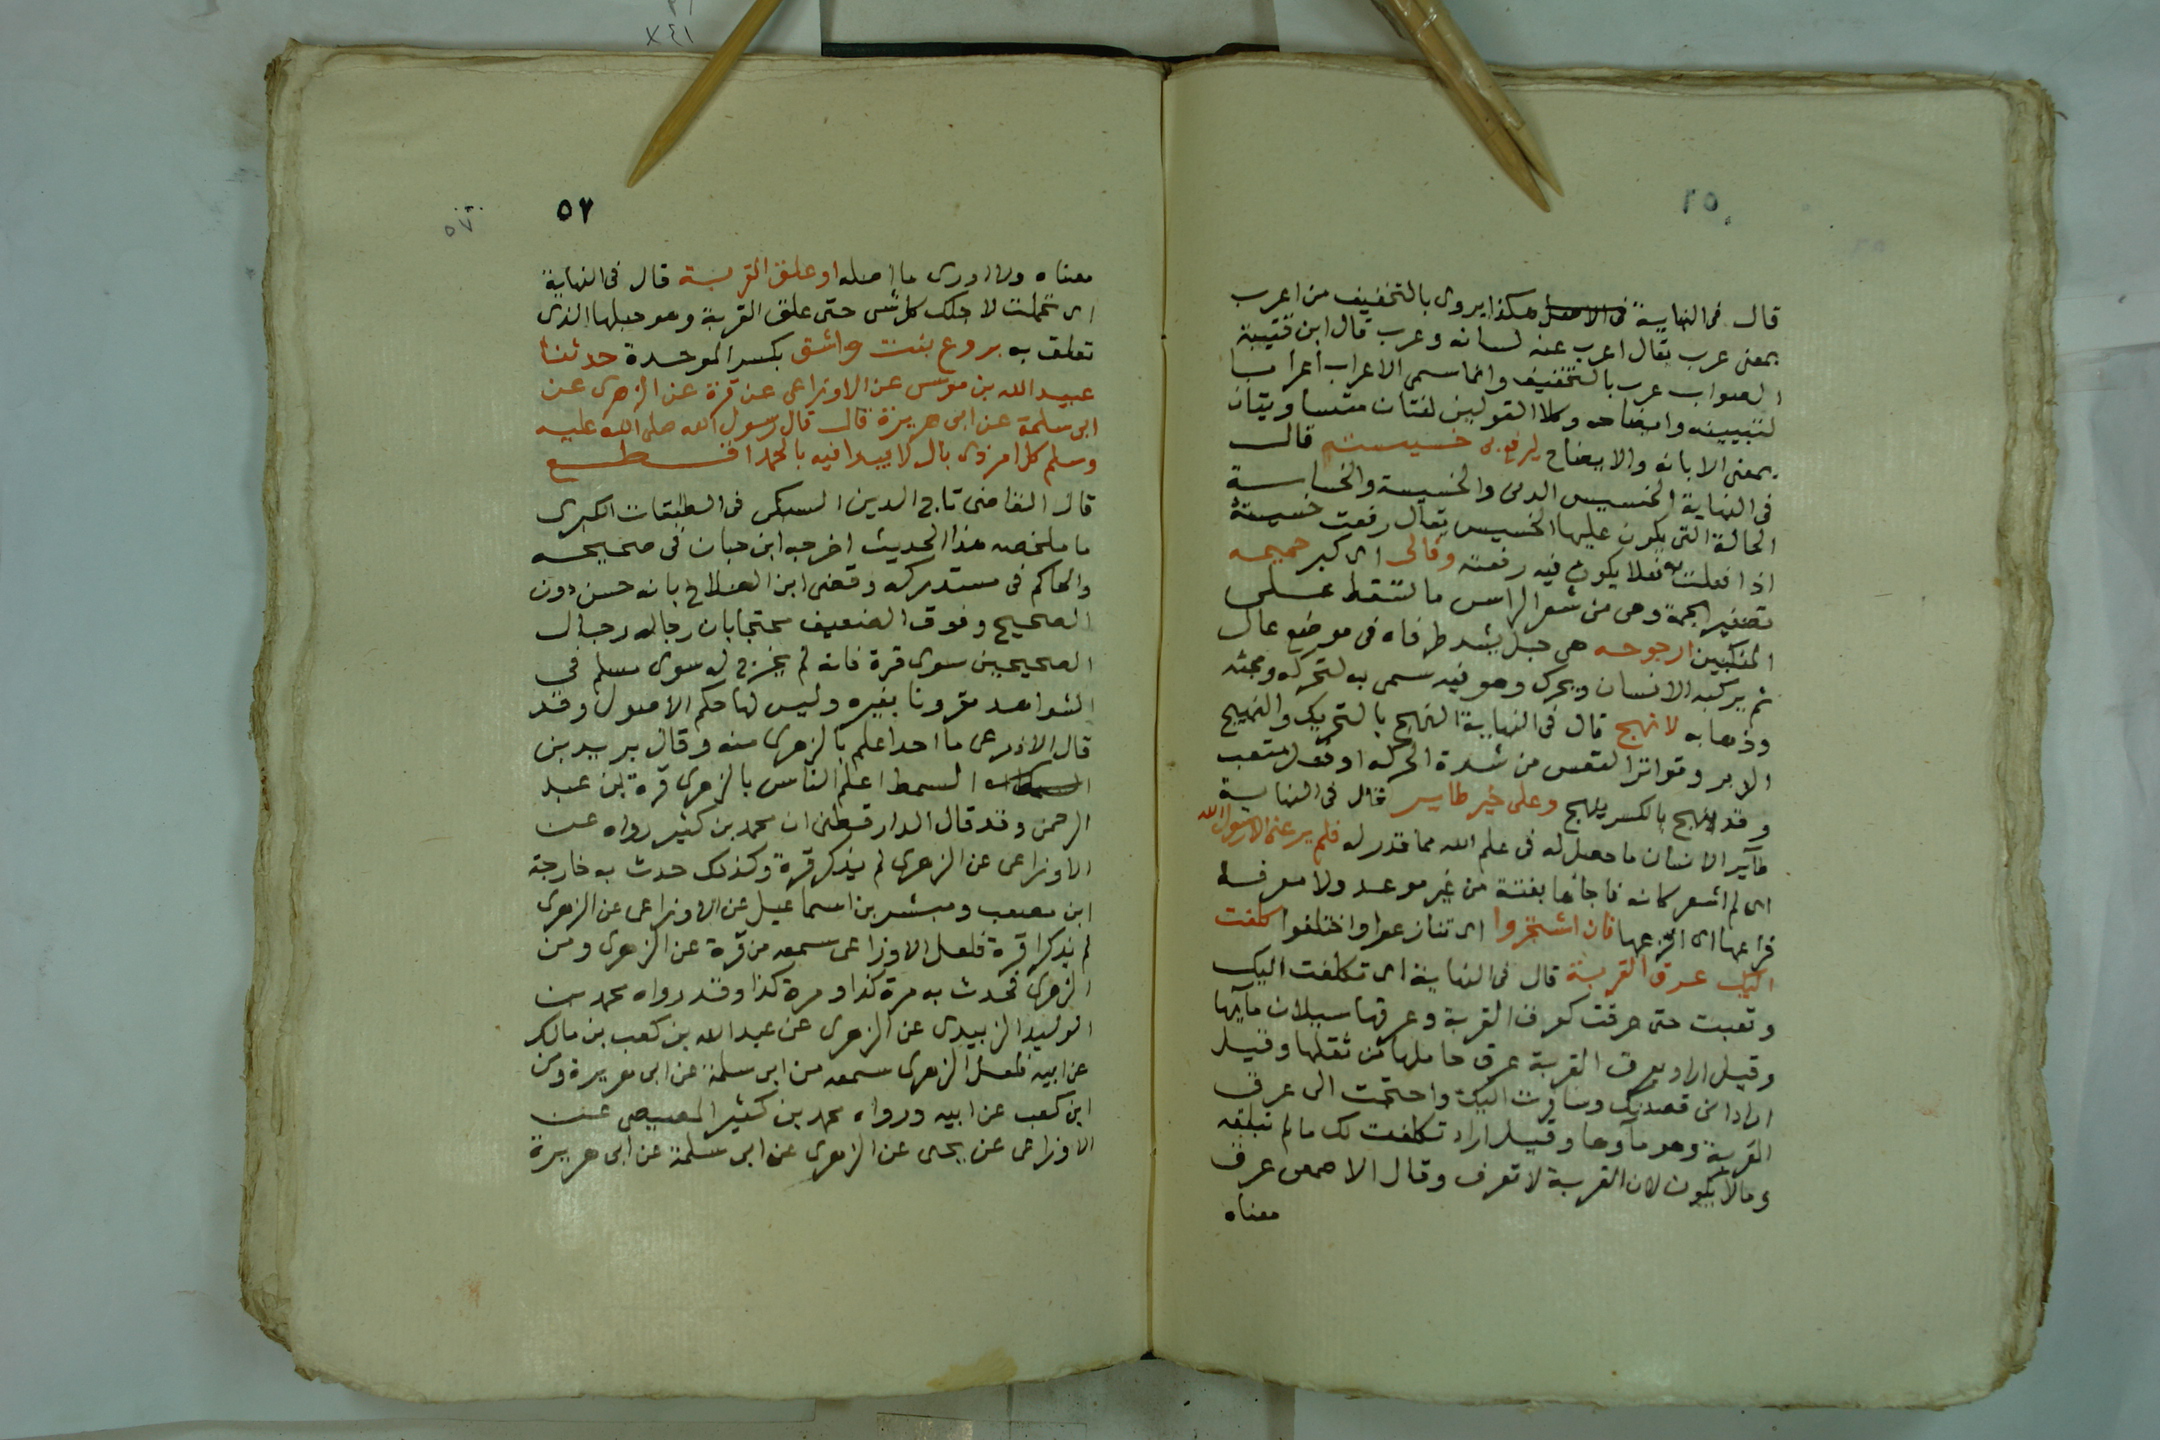 ٥٦
قال فى النهاية هكذا يروى بالتخفيف من اعرب
بمعنى عرب يقال اعرب عنه لسانه وعرب قال ابن قتيبة
الصواب عرب بالتخفيف وانما سمى الاعراب اعرابا
لتبيينه وايضاحه وكلا القولين لغتان متساويتان
بمعنى الابانه والايضاح ليرفع بى خسيسته قال
فى النهاية الخسيس الدنى والخسيسة والخساسة
الحالة التى يكون عليها الخسيس يقال رفعت خسيسته
اذا فعلت به فعلا يكون فيه رفعته وفالى اى كبر جميمه
تصغير الجمة وهى من شعر الراس ما سقط على
المنكبين ارجوحه هى حبل يشد طرفاه فى موضع عال
ثم يركبه الانسان ويحرك وهو فيه سمى به لتحركه ومجئه
وذهابه لانهج قال فى النهاية النهج بالتحريك والنهيج
الربو وتواتر النفس من شدة الحركه او فعل متعب
وقد نهج بالكسر ينهج وعلى خير طاير قال فى النهاية
طاير الانسان ما حصل له فى علم الله مما قدر له فلم يرعنى الا رسول الله
اى لم اشعر كانه فاجأها بغتة من غير موعد ولا معرفه
فراعها اى افزعها فان اشتجروا اى تنازعوا واختلفوا كلفت
اليك عرق القربة قال فى النهاية اى تكلفت اليك
وتعبت حتى عرقت كعرق القربة وعرقها سيلان مآيها
وقيل اراد بعرق القربة عرق حاملها من ثقلها وقيل
اراد انى قصدتك وسافرت اليك واحتجت الى عرق
القربة وهو مآوها وقيل اراد تكلفت لك ما لم تبلغه
وما لا يكون لان القربة لا تعرق وقال الاصمعى عرق
معناه
٥٧
٥٧
معناه ولا ادرى ما اصله او علق القربة قال فى النهاية
اى تحملت لاجلك كل شى حتى علق القربة وهو حبلها الذى
تعلق به بروع بنت واشق بكسر الموحدة حدثنا
عبيد الله بن موسى عن الاوزاعى عن قرة عن الزهرى عن
ابى سلمة عن ابى هريرة قال قال رسول الله صلى الله عليه
وسلم كل امر ذى بال لا يبدا فيه بالحمد اقطع
قال القاضى تاج الدين السبكى فى الطبقات الكبرى
ما ملخصه هذا الحديث اخرجه ابن حبان فى صحيحه
والحاكم فى مستدركه وقضى ابن الصلاح بانه حسن دون
الصحيح وفوق الضعيف محتجا بان رجاله رجال
الصحيحين سوى قرة فانه لم يخرج له سوى مسلم فى
الشواهد مقرونا بغيره وليس لها حكم الاصول وقد
قال الاوزرعى ما احدا علم بالزهرى منه وقال يزيد بن
السمط اعلم الناس بالزهرى قرة بن عبد
الرحمن وقد قال الدارقطنى ان محمد بن كثير رواه عن
الاوزاعى عن الزهرى لم يذكر قرة وكذلك حدث به خارجة
ابن مصعب ومبشر بن اسماعيل عن الاوزاعى عن الزهرى
لم يذكرا قرة فلعل الاوزاعى سمعه من قرة عن الزهرى ومن
الزهرى فحدث به مرة كذا ومرة كذا وقد رواه محمد بن
الوليد الزبيدى عن الزهرى عن عبد الله بن كعب بن مالك
عن ابيه فلعل الزهرى سمعه من ابى سلمة عن ابى هريرة ومن
ابن كعب عن ابيه ورواه محمد بن كثير المصيصى عن
الاوزاعى عن يحيى عن الزهرى عن ابى سلمة عن ابى هريرة